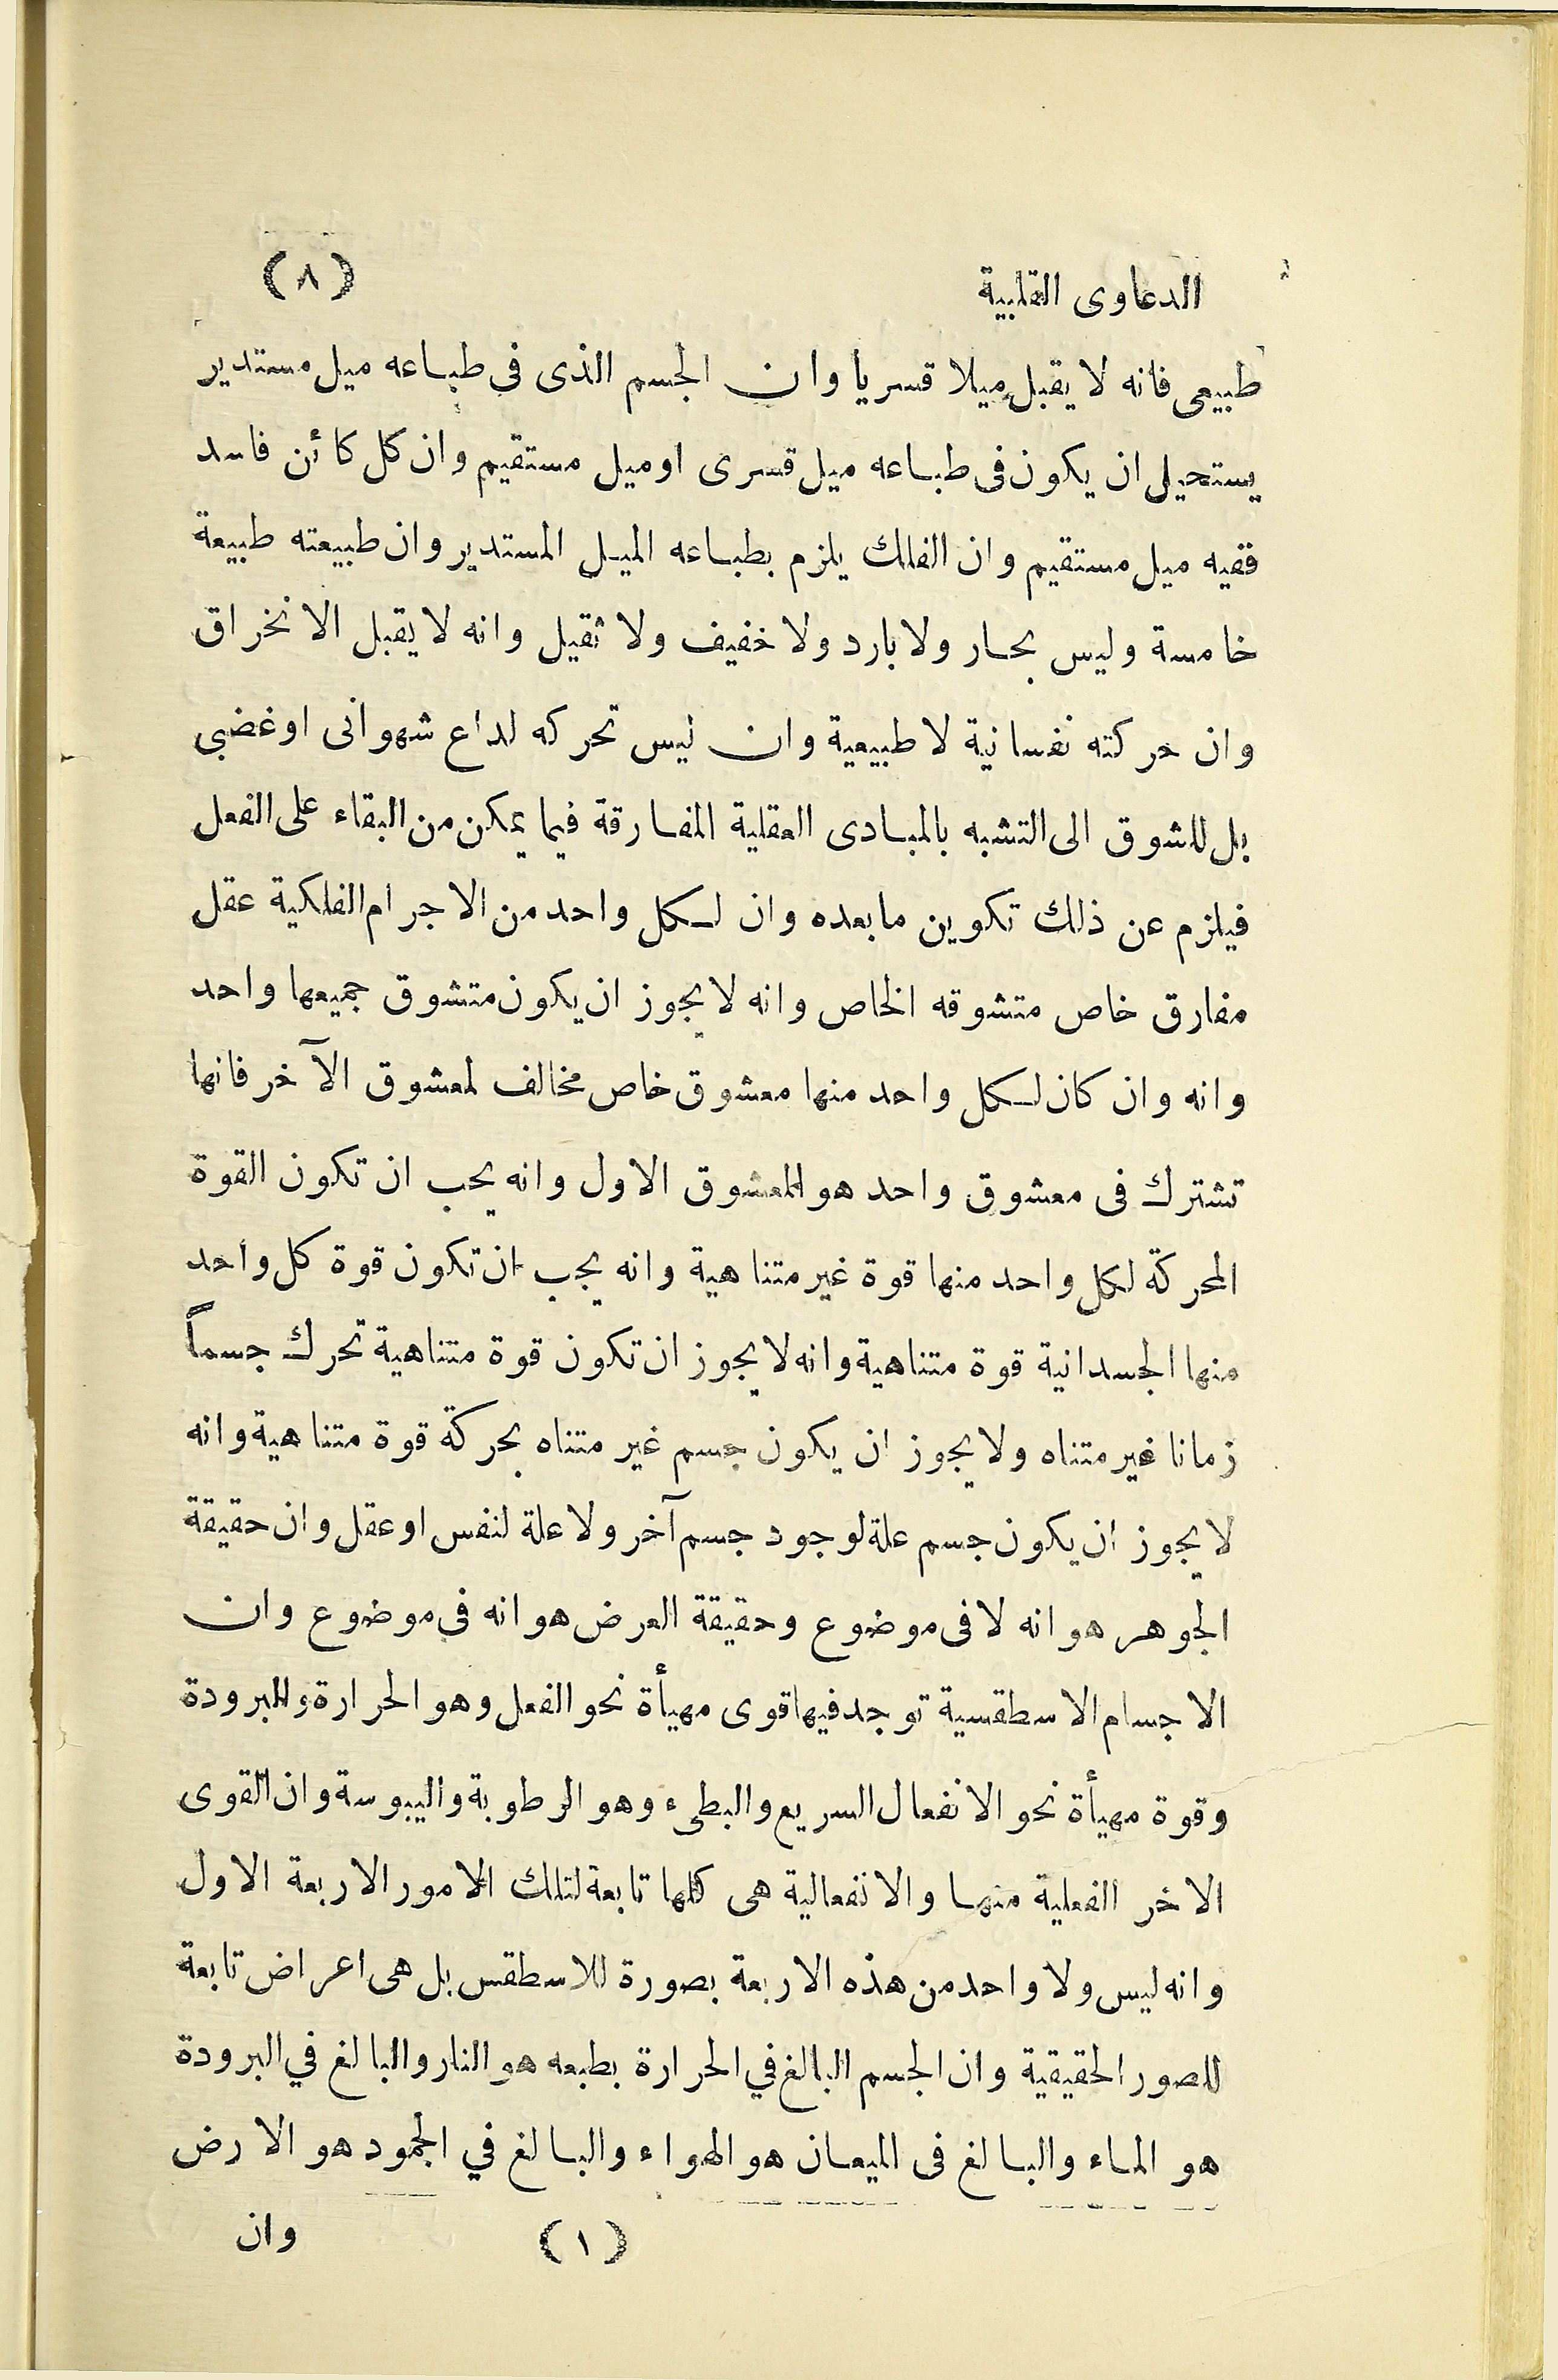 الدعاوى القلبية (٨)
طبيعى فانه لا يقبل ميلا قسريا وان الجسم الذى فى طباعه ميل مستدير
يستحيل ان يكون فى طباعه ميل قسرى اوميل مستقيم وان كل كائن فاسد
ففيه ميل مستقيم وان الفلك يلزم بطباعه الميل المستدير وان طبيعته طبيعة
خامسة وليس بحار ولا بارد ولا خفيف ولا ثقيل وانه لا يقبل الانخراق
وان حركته نفسانية لا طبيعية وان ليس تحركه لداع شهوانى اوغضبى
بل للشوق الى التشبه بالمبادى العقلية المفارقة فيما يمكن من البقاء على الفعل
فيلزم عن ذلك تكوين ما بعده وان لكل واحد من الاجرام الفلكية عقل
مفارق خاص متشوقه الخاص وانه لا يجوز ان يكون متشوق جميعها واحد
وانه وان كان لكل واحد منها معشوق خاص مخالف لمعشوق الآخر فانها
تشترك فى معشوق واحد هو المعشوق الاول وانه يجب ان تكون القوة
المحركة لكل واحد منها قوة غير متناهية وانه يجب ان تكون قوة كل واحد
منها الجسدانية قوة متناهية وانه لا يجوز ان تكون قوة متناهية تحرك جسماً
زمانا غير متناه ولا يجوز ان يكون جسم غير متناه بحركة قوة متناهية وانه
لا يجوز ان يكون جسم علة لوجود جسم آخر ولا علة لنفس اوعقل وان حقيقة
الجوهر هو انه لا فى موضوع وحقيقة العرض هو انه فى موضوع وان
الاجسام الاسطقسية توجد فيها قوى مهيأة نحو الفعل وهو الحرارة والبرودة
وقوة مهيأة نحو الانفعال السريع والبطىء وهو الرطوبة واليبوسة وان القوى
الاخر الفعلية منها والانفعالية هى كلها تابعة لتلك الامور الاربعة الاول
وانه ليس ولا واحد من هذه الاربعة بصورة للاسطقس بل هى اعراض تابعة
للصور الحقيقية وان الجسم البالغ في الحرارة بطبعه هو النار والبالغ في البرودة
هو الماء والبالغ فى الميعان هو الهواء والبالغ في الجمود هو الارض
(١) وان